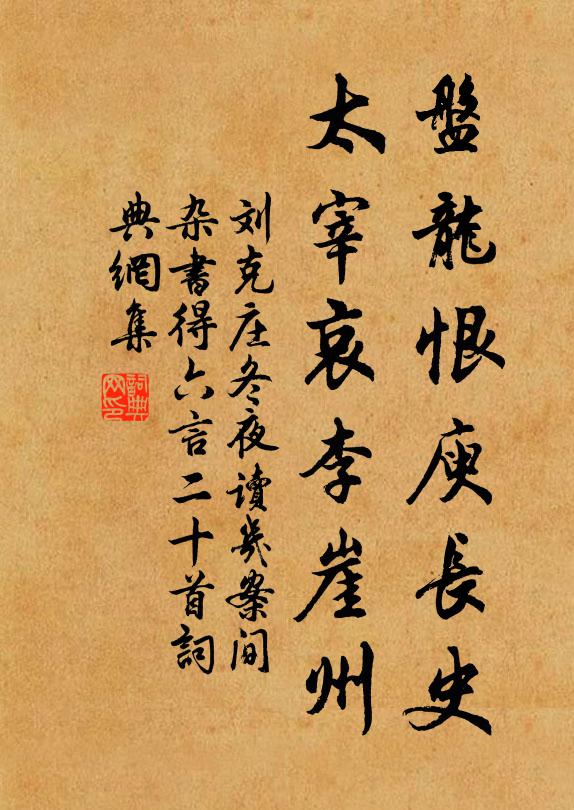 盤龍恨庾長史
太宰哀李崖州
刘克庄冬夜讀幾案间
杂書得六言二十首詞
典網集
詞典網印